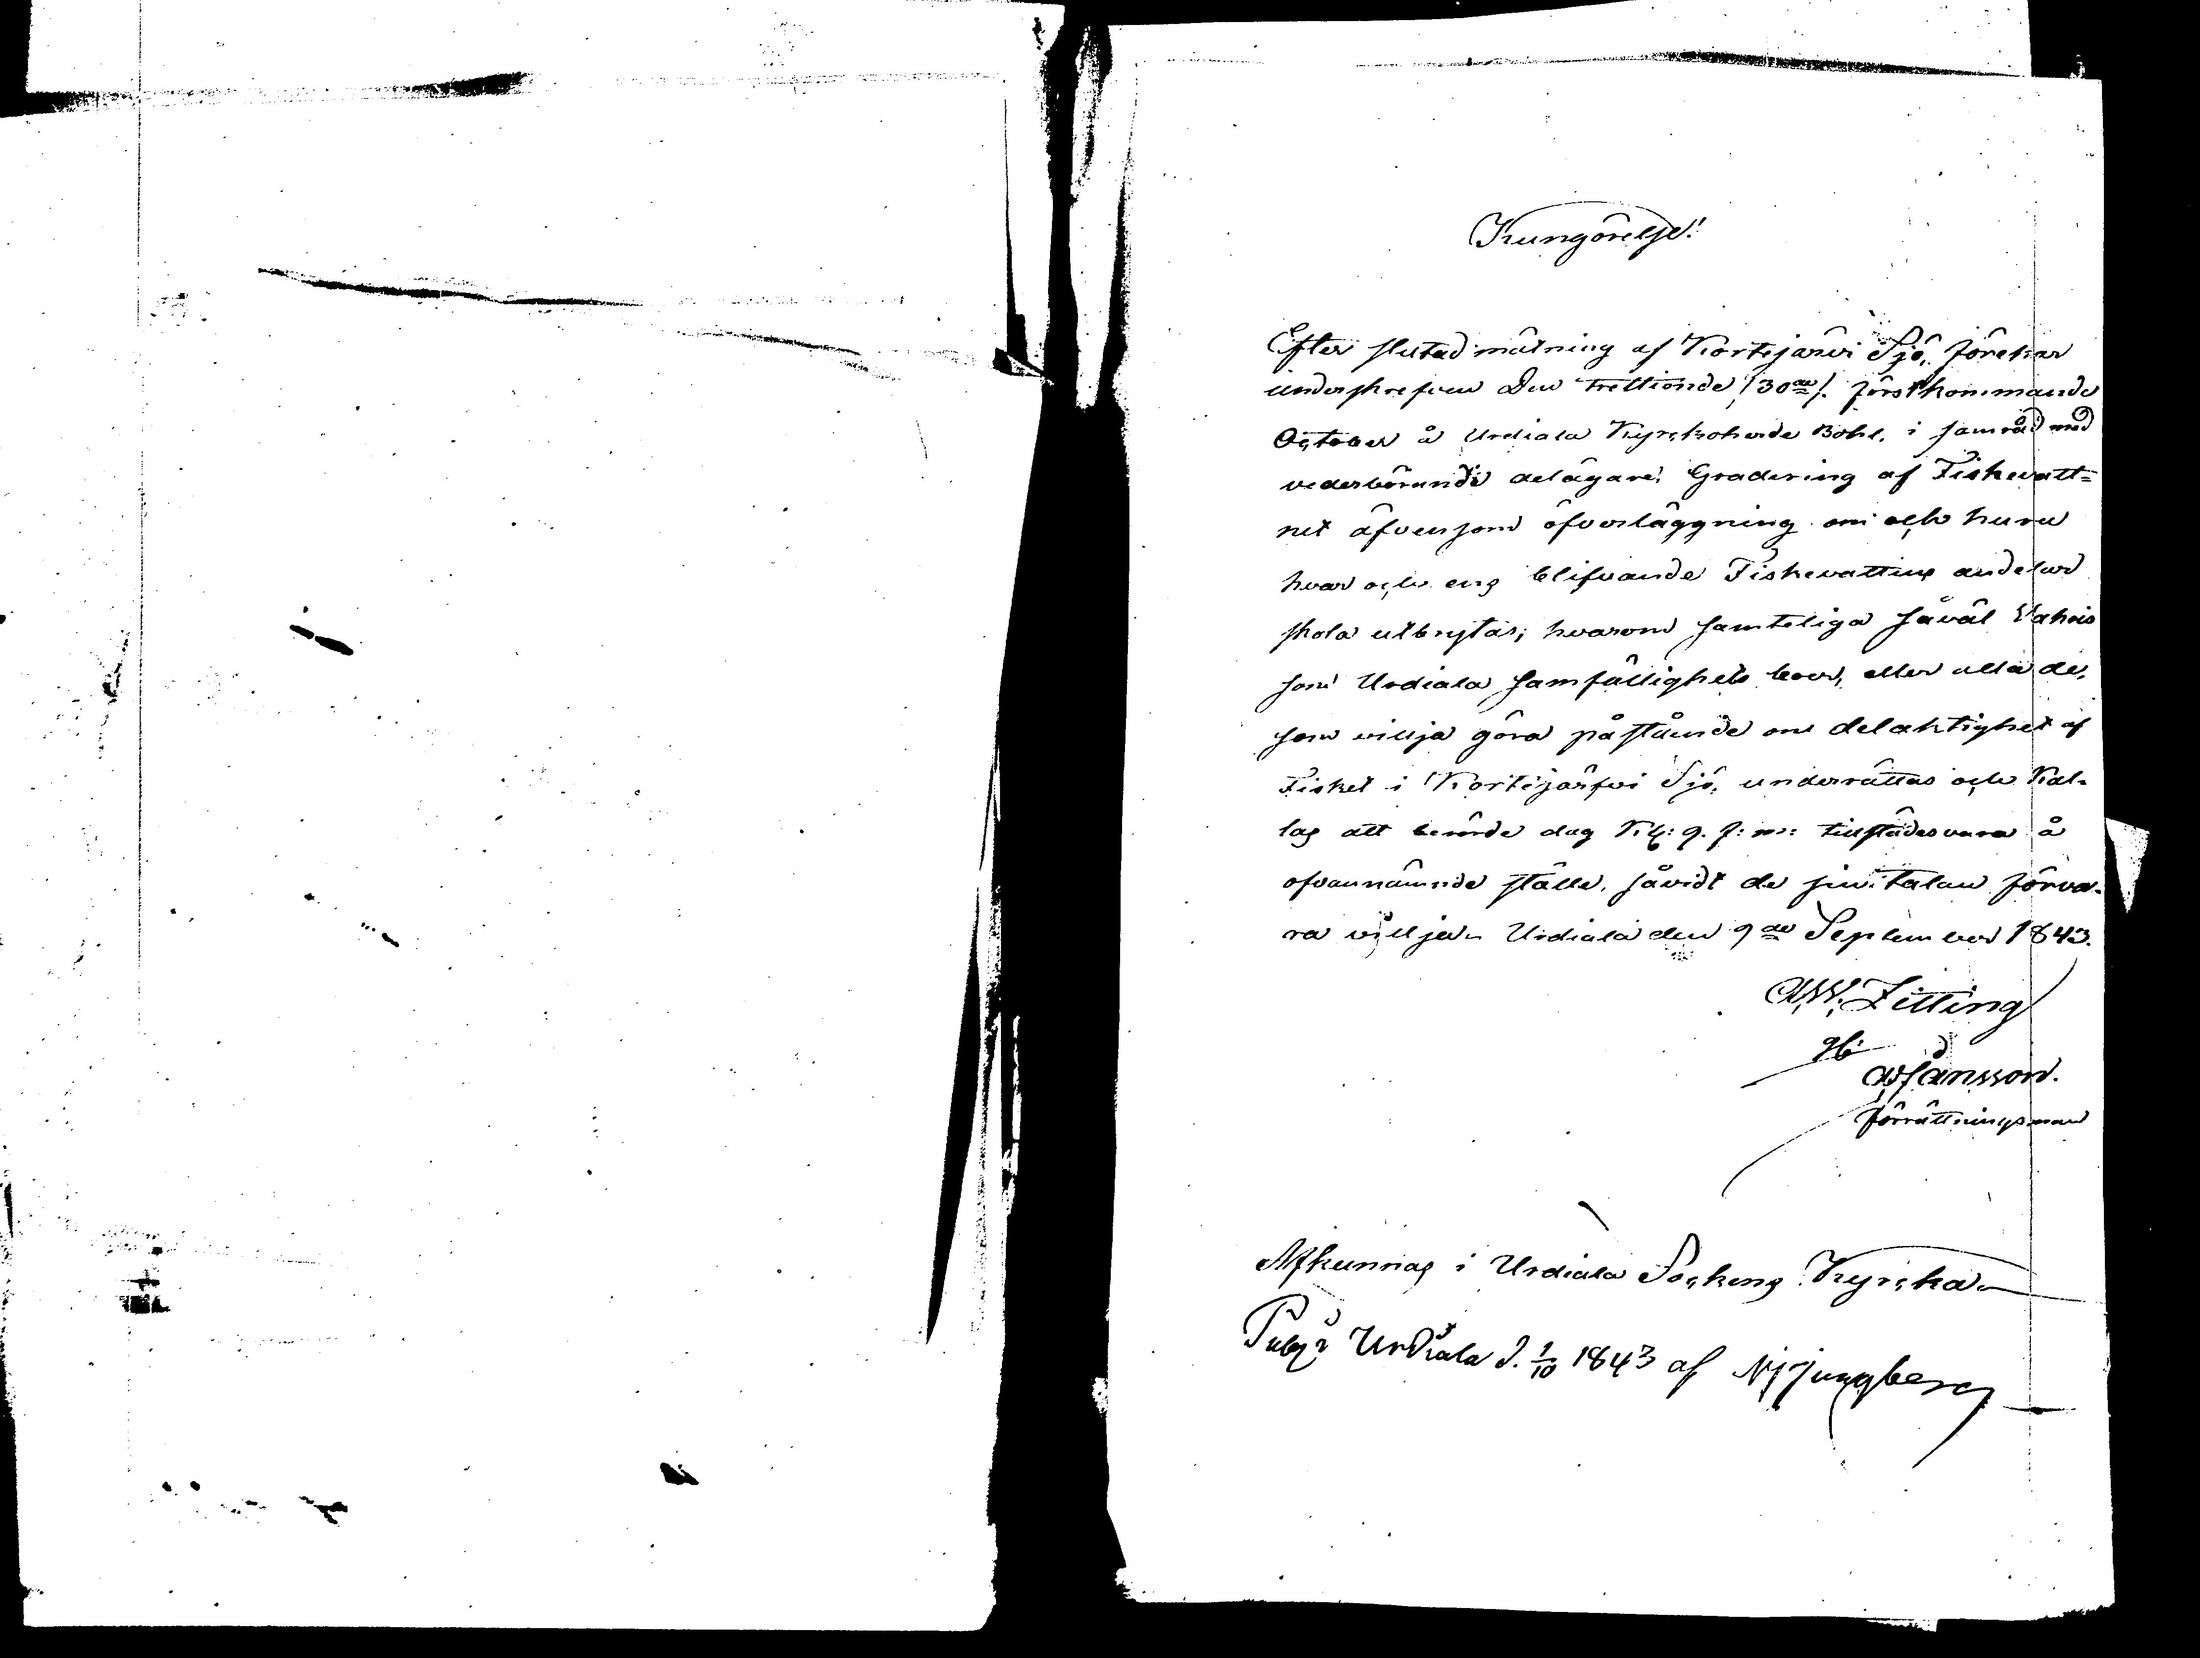 Kungörelse!
Efter slutad mätning af Kortejärvi Sjö, företar
underskrefven den trettionde /30de/ förstkommande
October å Urdiala Kyrkoherde Bohl, i samråd med
vederbörande delägare, Gradering af Fiskevatt=
net äfvensom öfverläggning om och huru
hvar och ens blifvande Fiskevattens andelar
skola utbrytas; hvarom samteliga såväl
som Urdiala samfällighets boer, eller alla de,
som vilja göra påstående om delaktighet af
Fisket i Kortejärfvi Sjö, underrättas och Kal-
las att berörde dag Kl: 9. f: m: tillstädesvara å
ofvannämnde ställe, såvidt de sin talan förva-
ra villja. Urdiala den 9de September 1843.
A.W. Zitting
gb
Jansson.
förrättningsman
Afkunnas i Urdiala Sockens Kyrka
Publ. i Urdiala d. 1/10 1843 af N Ljungberg